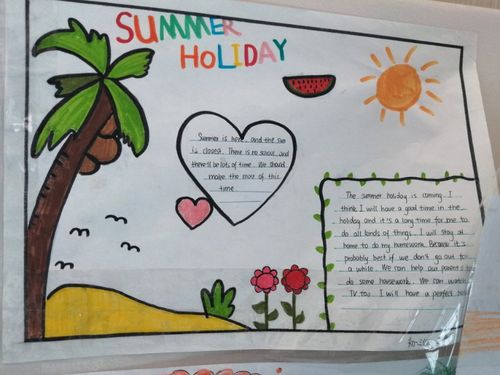 SUMMER
HOLIDAY
Summer is here, and the sun
is closest. There is no school, and
there'll be lots of time. We should
make the most of this
time
The summer holiday is coming. I
think I will have a good time in the
holiday and it's a long time for me to
do all kinds of things. I will stay at
home to do my homework. Because it's
probably best if we don't go out for
a while. We can help our parents
do some housework. We can watch
TV too. I will have a perfect